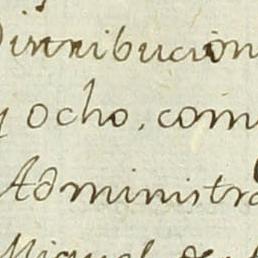 Distribucion
y ocho, com
Administra
Miguel de